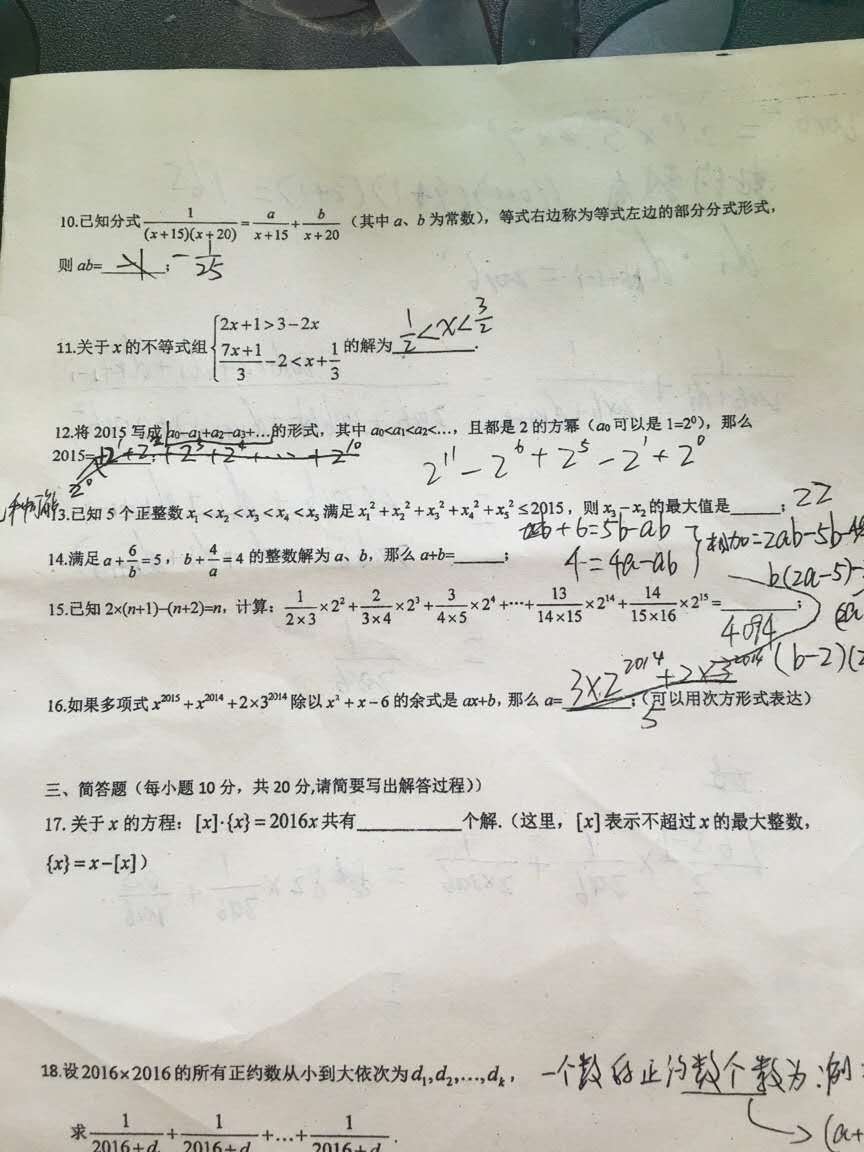 10.已知分式 1/((x+15)(x+20)) = a/(x+15) + b/(x+20) （其中 a、b 为常数），等式右边称为等式左边的部分分式形式，
则 ab=______； -1/25
11.关于 x 的不等式组 { 2x+1>3-2x ; (7x+1)/3 - 2 < x + 1/3 的解为 1/2 < x < 3/2 .
12.将 2015 写成 a₀-a₁+a₂-a₃+…的形式，其中 a₀<a₁<a₂<…，且都是 2 的方幂（a₀ 可以是 1=2⁰），那么
2015=______； 2¹¹-2⁶+2⁵-2¹+2⁰
13.已知 5 个正整数 x₁<x₂<x₃<x₄<x₅ 满足 x₁²+x₂²+x₃²+x₄²+x₅²≤2015，则 x₃-x₂的最大值是______； 22
+6=5b-ab
14.满足 a+6/b=5，b+4/a=4 的整数解为 a、b，那么 a+b=______； 4=4a-ab
=2ab-5b-4a
b(2a-5)-
15.已知 2×(n+1)-(n+2)=n，计算：1/(2×3)×2²+2/(3×4)×2³+3/(4×5)×2⁴+…+13/(14×15)×2¹⁴+14/(15×16)×2¹⁵=______； 4094
(b-2)(2
3×2²⁰¹⁴+2×3²⁰¹⁴
16.如果多项式 x²⁰¹⁵+x²⁰¹⁴+2×3²⁰¹⁴ 除以 x²+x-6 的余式是 ax+b，那么 a=______；（可以用次方形式表达）
5
三、简答题（每小题 10 分，共 20 分,请简要写出解答过程））
17. 关于 x 的方程：[x]·{x}=2016x 共有__________个解.（这里，[x] 表示不超过 x 的最大整数，
{x}=x-[x]）
18.设 2016×2016 的所有正约数从小到大依次为 d₁,d₂,…,dₖ， 一个数的正约数个数为:例:
求 1/(2016+d + 1/(2016+d +…+ 1/(2016+d .
(a+